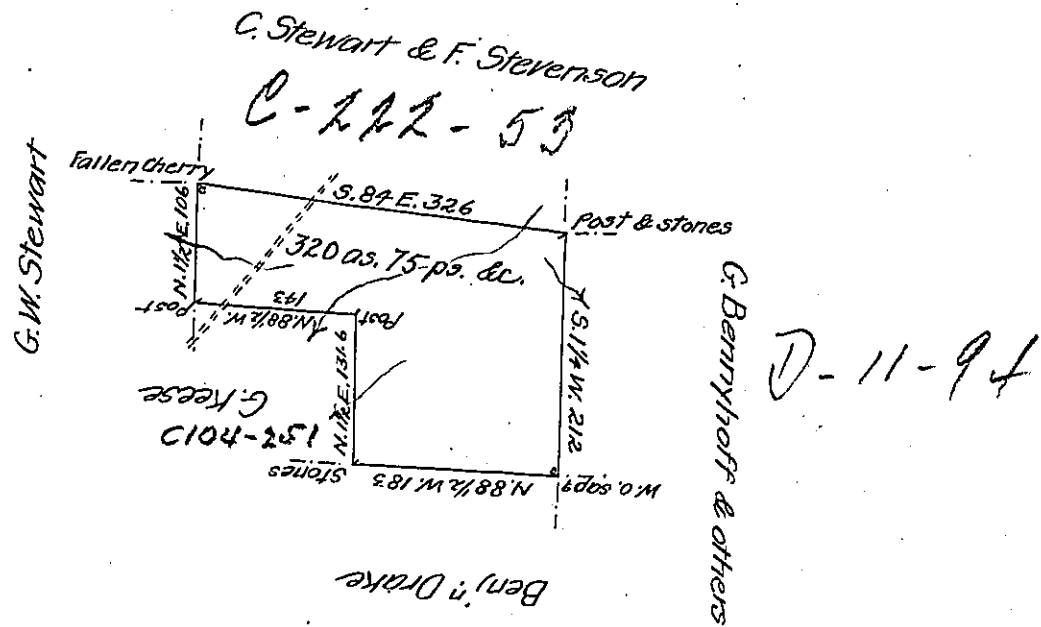 C. Stewart & F. Stevenson
C-222-53
G.W. Stewart
Fallen cherry
S.84 E. 326
Post & stones
N.1½ E. 106
320 as. 75 ps. &c.
Post
N.88½ W. 143
Post
S.1¼ W. 212
G. Bennyhoff & others
D-11-94
G. Keese
N.1½ E. 131.6
Stones
N.88½ W. 183
W.O. sapg
Benj'n. Drake